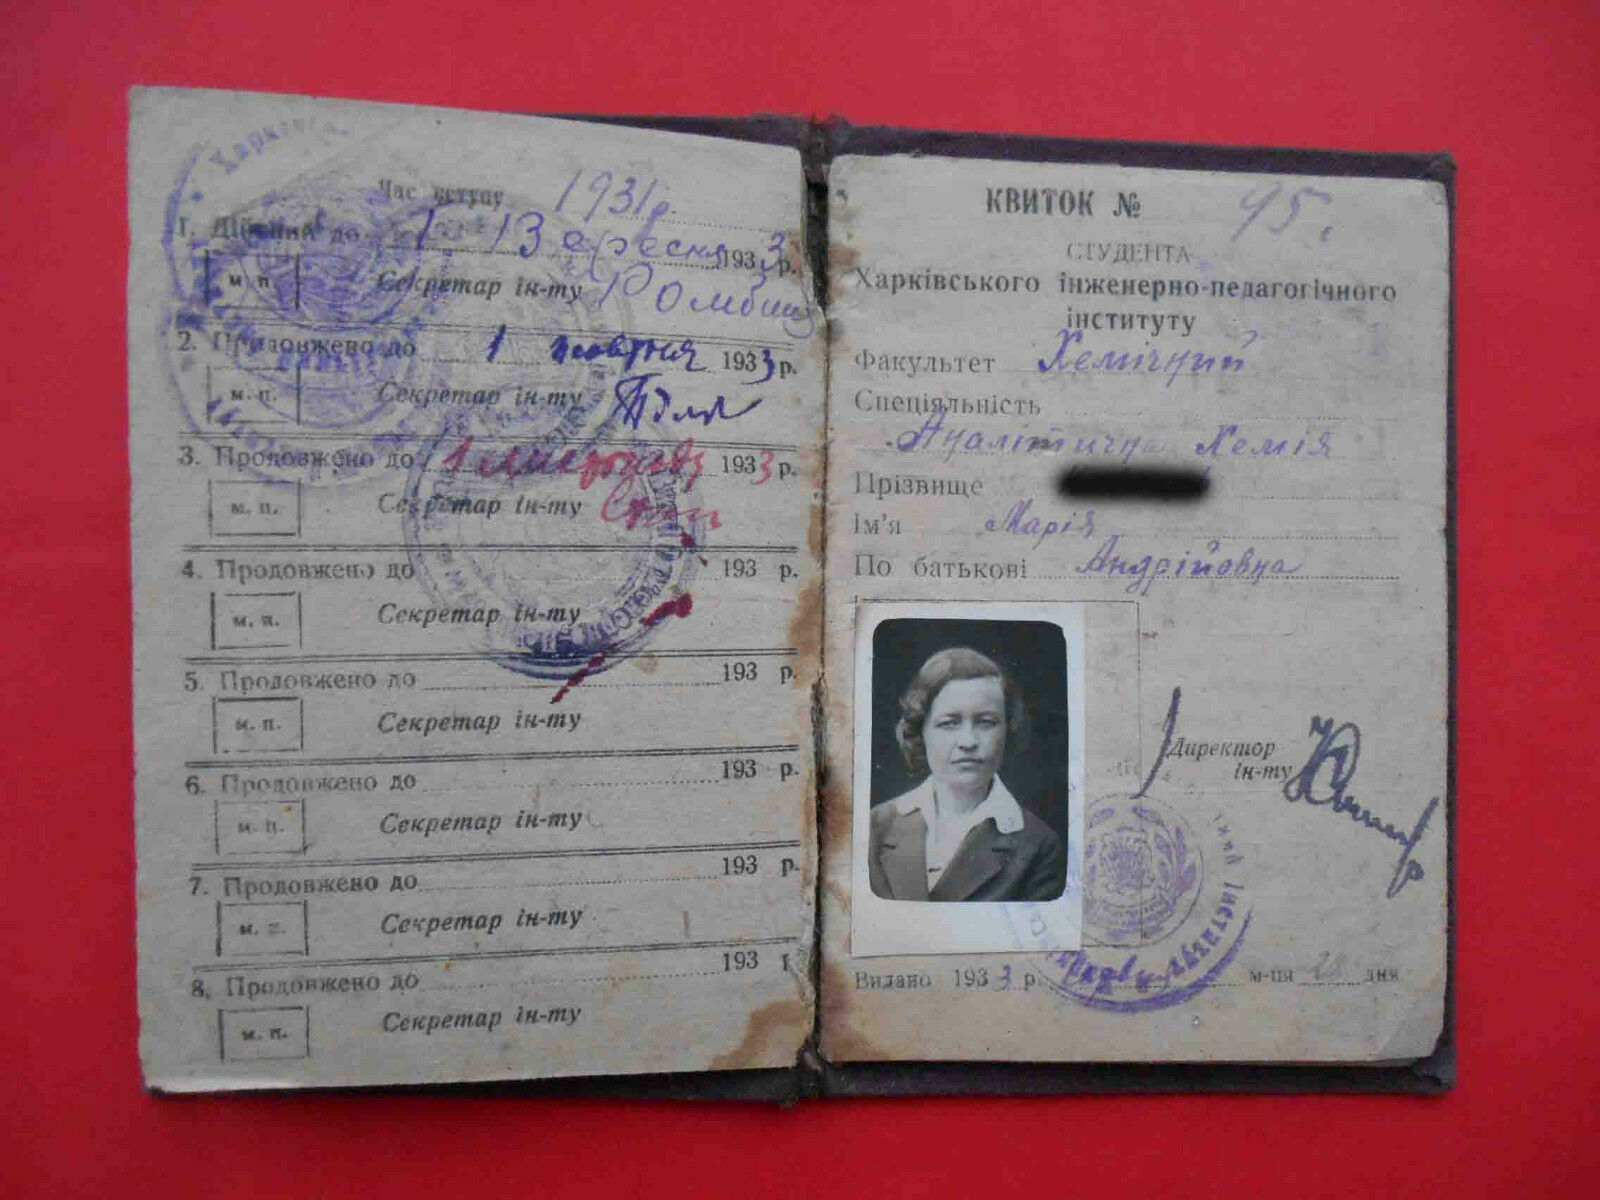 Час вступу 1931 р.
1. Дійсний до 1 Вересня 1933 р.
м. п. Секретар ін-ту
2. Продовжено до 1 жовтня 1933 р.
м. п. Секретар ін-ту
3. Продовжено до 1 листопада 1933 р.
м. п. Секретар ін-ту
4. Продовжено до 193 р.
м. п. Секретар ін-ту
5. Продовжено до 193 р.
м. п. Секретар ін-ту
6. Продовжено до 193 р.
м. п. Секретар ін-ту
7. Продовжено до 193 р.
м. п. Секретар ін-ту
8. Продовжено до 193 р
м. п. Секретар ін-ту
КВИТОК № 45
СТУДЕНТА
Харківського інженерно-педагогічного
інституту
Факультет Хемічний
Спеціяльність
Аналітична Хемія
Прізвище
Ім'я Марія
По батькові Андрійовна
Директор
ін-ту
Видано 1933 р. м-ця 28 дня